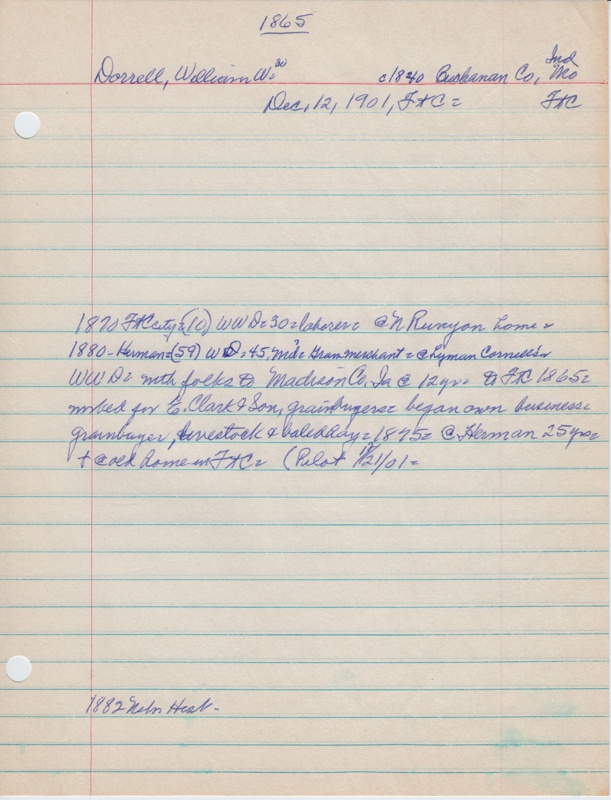 1865
Dorrell, William W= c1840 Buchanan Co, Ind Mo
Dec, 12, 1901, FtC= FtC
1870 FtC city=(10) WWD=30=laborer= @ N Runyon home=
1880-Herman=(59) WD=45, Md= Grain merchant= @ Lyman
WWD= with folks to Madison Co, Ia @ 12yrs to FtC 1865=
worked for E. Clark & Son, grainbuyers= began own business=
grainbuyer, livestock & baled hay= 1875= @ Herman 25yrs=
+ @ old home in FtC= (Pilot 1/21/01=
1882 Nebr Hist-